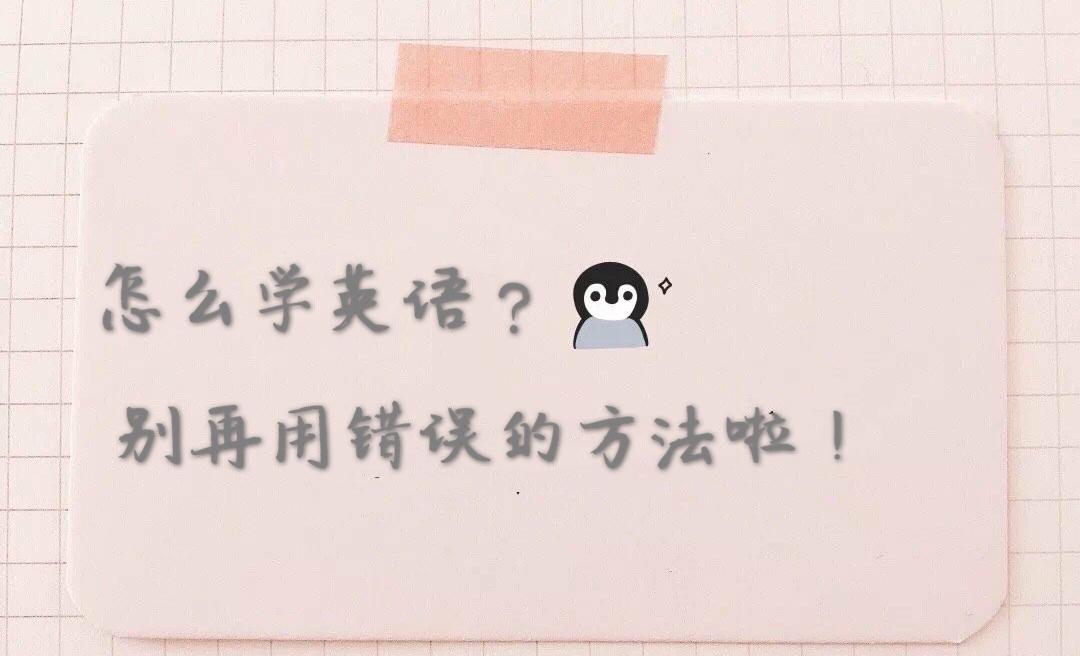 怎么学英语？
别再用错误的方法啦！